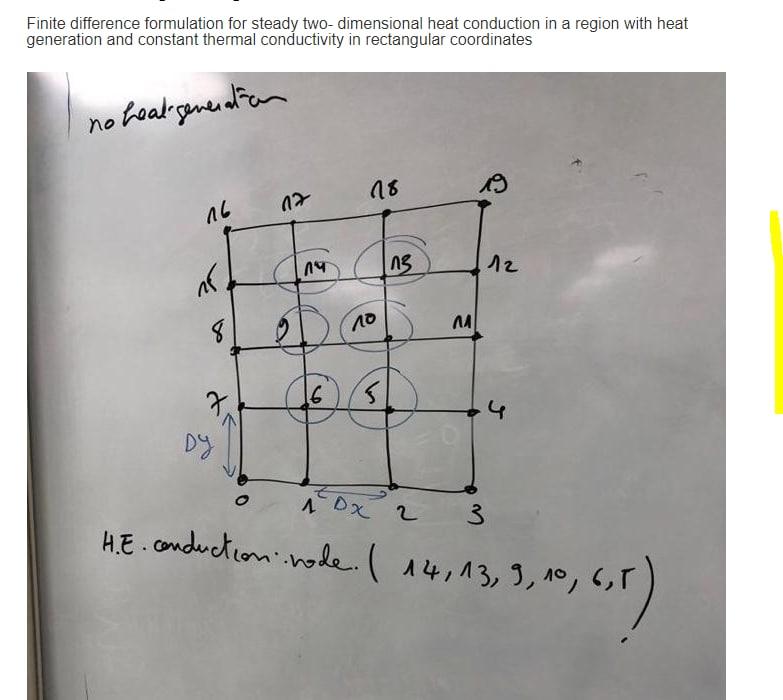 Finite difference formulation for steady two- dimensional heat conduction in a region with heat
generation and constant thermal conductivity in rectangular coordinates
no heat generation
16 17 18 19
15 14 13 12
8 9 10 11
7 6 5 4
Dy
0 1 Dx 2 3
H.E. conduction node. ( 14, 13, 9, 10, 6, 5 )